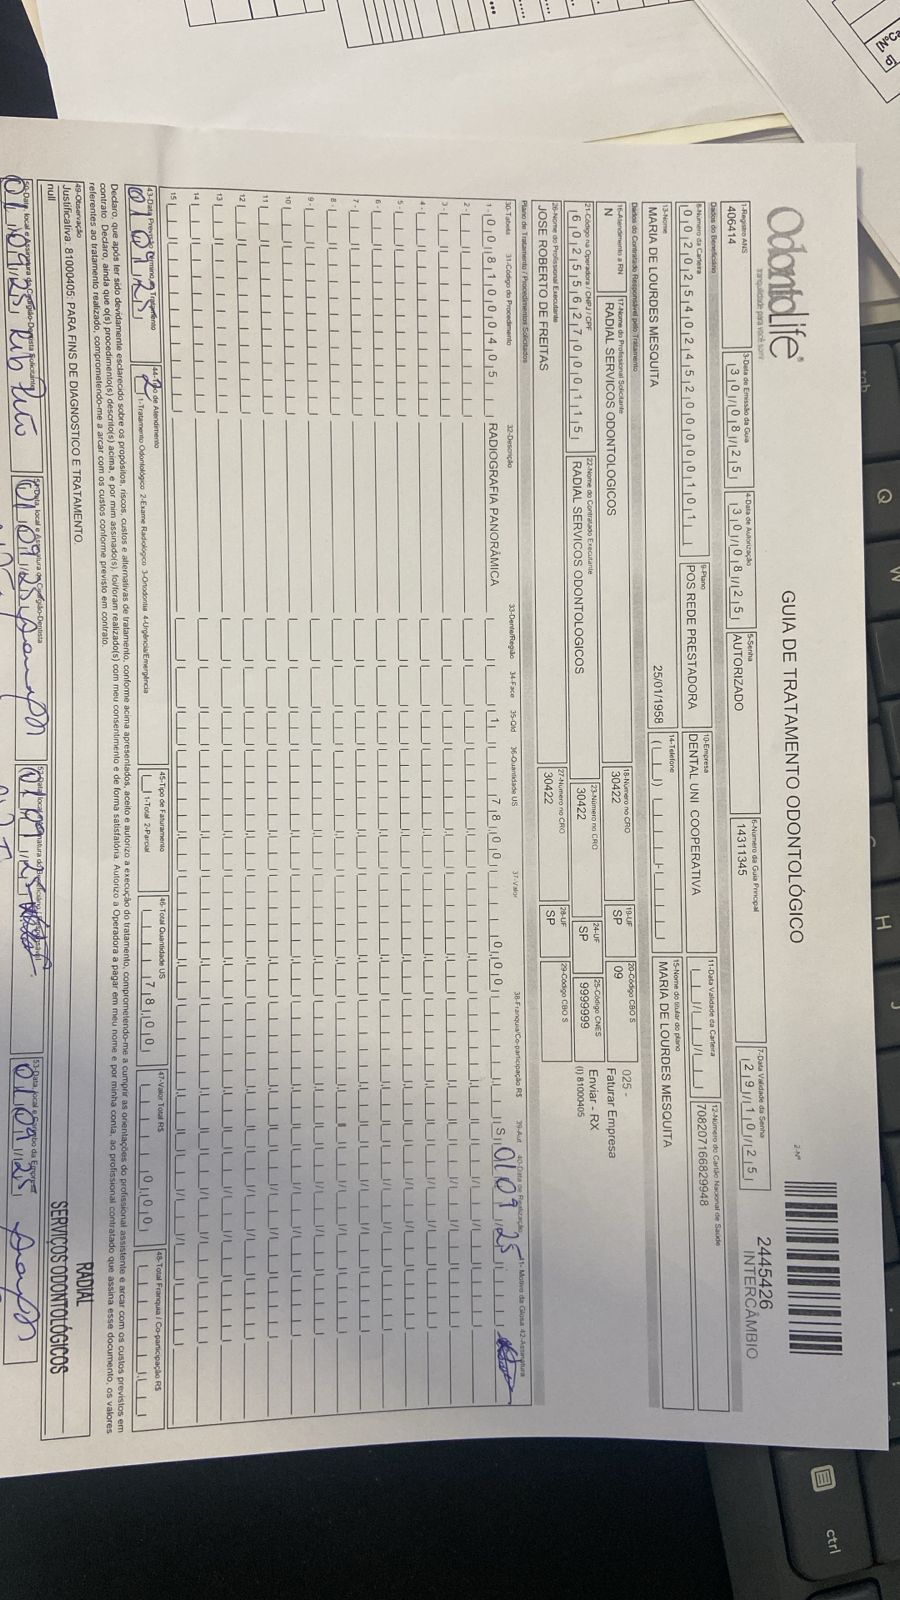 OdontoLife®
tranquilidade para você sorrir
GUIA DE TRATAMENTO ODONTOLÓGICO
2-Nº
2445426
INTERCÂMBIO
1-Registro ANS
406414
3-Data de Emissão da Guia
30/08/25
4-Data de Autorização
30/08/25
5-Senha
AUTORIZADO
6-Número da Guia Principal
14311345
7-Data Validade da Senha
29/10/25
Dados do Beneficiário
8-Número da Carteira
00202540245200000101
9-Plano
POS REDE PRESTADORA
10-Empresa
DENTAL UNI COOPERATIVA
11-Data Validade da Carteira
12-Número do Cartão Nacional de Saúde
708207166829948
13-Nome
MARIA DE LOURDES MESQUITA
25/01/1958
14-Telefone
15-Nome do titular do plano
MARIA DE LOURDES MESQUITA
Dados do Contratado Responsável pelo Tratamento
16-Atendimento a RN
N
17-Nome do Profissional Solicitante
RADIAL SERVICOS ODONTOLOGICOS
18-Número no CRO
30422
19-UF
SP
20-Código CBO S
09
025 -
Faturar Empresa
Enviar - RX
(I) 81000405
21-Código na Operadora / CNPJ / CPF
60255627000115
22-Nome do Contratado Executante
RADIAL SERVICOS ODONTOLOGICOS
23-Número no CRO
30422
24-UF
SP
25-Código CNES
9999999
26-Nome do Profissional Executante
JOSE ROBERTO DE FREITAS
27-Número no CRO
30422
28-UF
SP
29-Código CBO S
Plano de Tratamento / Procedimentos Solicitados
30-Tabela 31-Código do Procedimento 32-Descrição 33-Dente/Região 34-Face 35-Qtd 36-Quantidade US 37-Valor 38-Franquia/Co-participação R$ 39-Aut 40-Data de Realização 41- Motivo da Glosa 42-Assinatura
1- 00 81000405 RADIOGRAFIA PANORÂMICA 1 78,00 0,00 S 01/09/25
2-
3-
4-
5-
6-
7-
8-
9-
10
11
12
13
14
15
43-Data Previsão Término do Tratamento
01 09 25
44-Tipo de Atendimento
2 1-Tratamento Odontológico 2-Exame Radiológico 3-Ortodontia 4-Urgência/Emergência
45-Tipo de Faturamento
1-Total 2-Parcial
46-Total Quantidade US
78,00
47-Valor Total R$
0,00
48-Total Franquia / Co-participação R$
Declaro, que após ter sido devidamente esclarecido sobre os propósitos, riscos, custos e alternativas de tratamento, conforme acima apresentados, aceito e autorizo a execução do tratamento, comprometendo-me a cumprir as orientações do profissional assistente e arcar com os custos previstos em
contrato. Declaro, ainda que o(s) procedimento(s) descrito(s) acima, e por mim assinado(s), foi/foram realizado(s) com meu consentimento e de forma satisfatória. Autorizo a Operadora a pagar em meu nome e por minha conta, ao profissional contratado que assina esse documento, os valores
referentes ao tratamento realizado, comprometendo-me a arcar com os custos conforme previsto em contrato.
49-Observação
Justificativa: 81000405: PARA FINS DE DIAGNOSTICO E TRATAMENTO
null
RADIAL
SERVIÇOS ODONTOLÓGICOS
50-Data, local e Assinatura do Cirurgião-Dentista Solicitante
01/09/25
51-Data, local e Assinatura do Cirurgião-Dentista
01/09/25
52-Data, local e Assinatura do Beneficiário
01/09/25
53-Data, local e Carimbo da Empresa
01/09/25
Q
W
H
J
ctrl